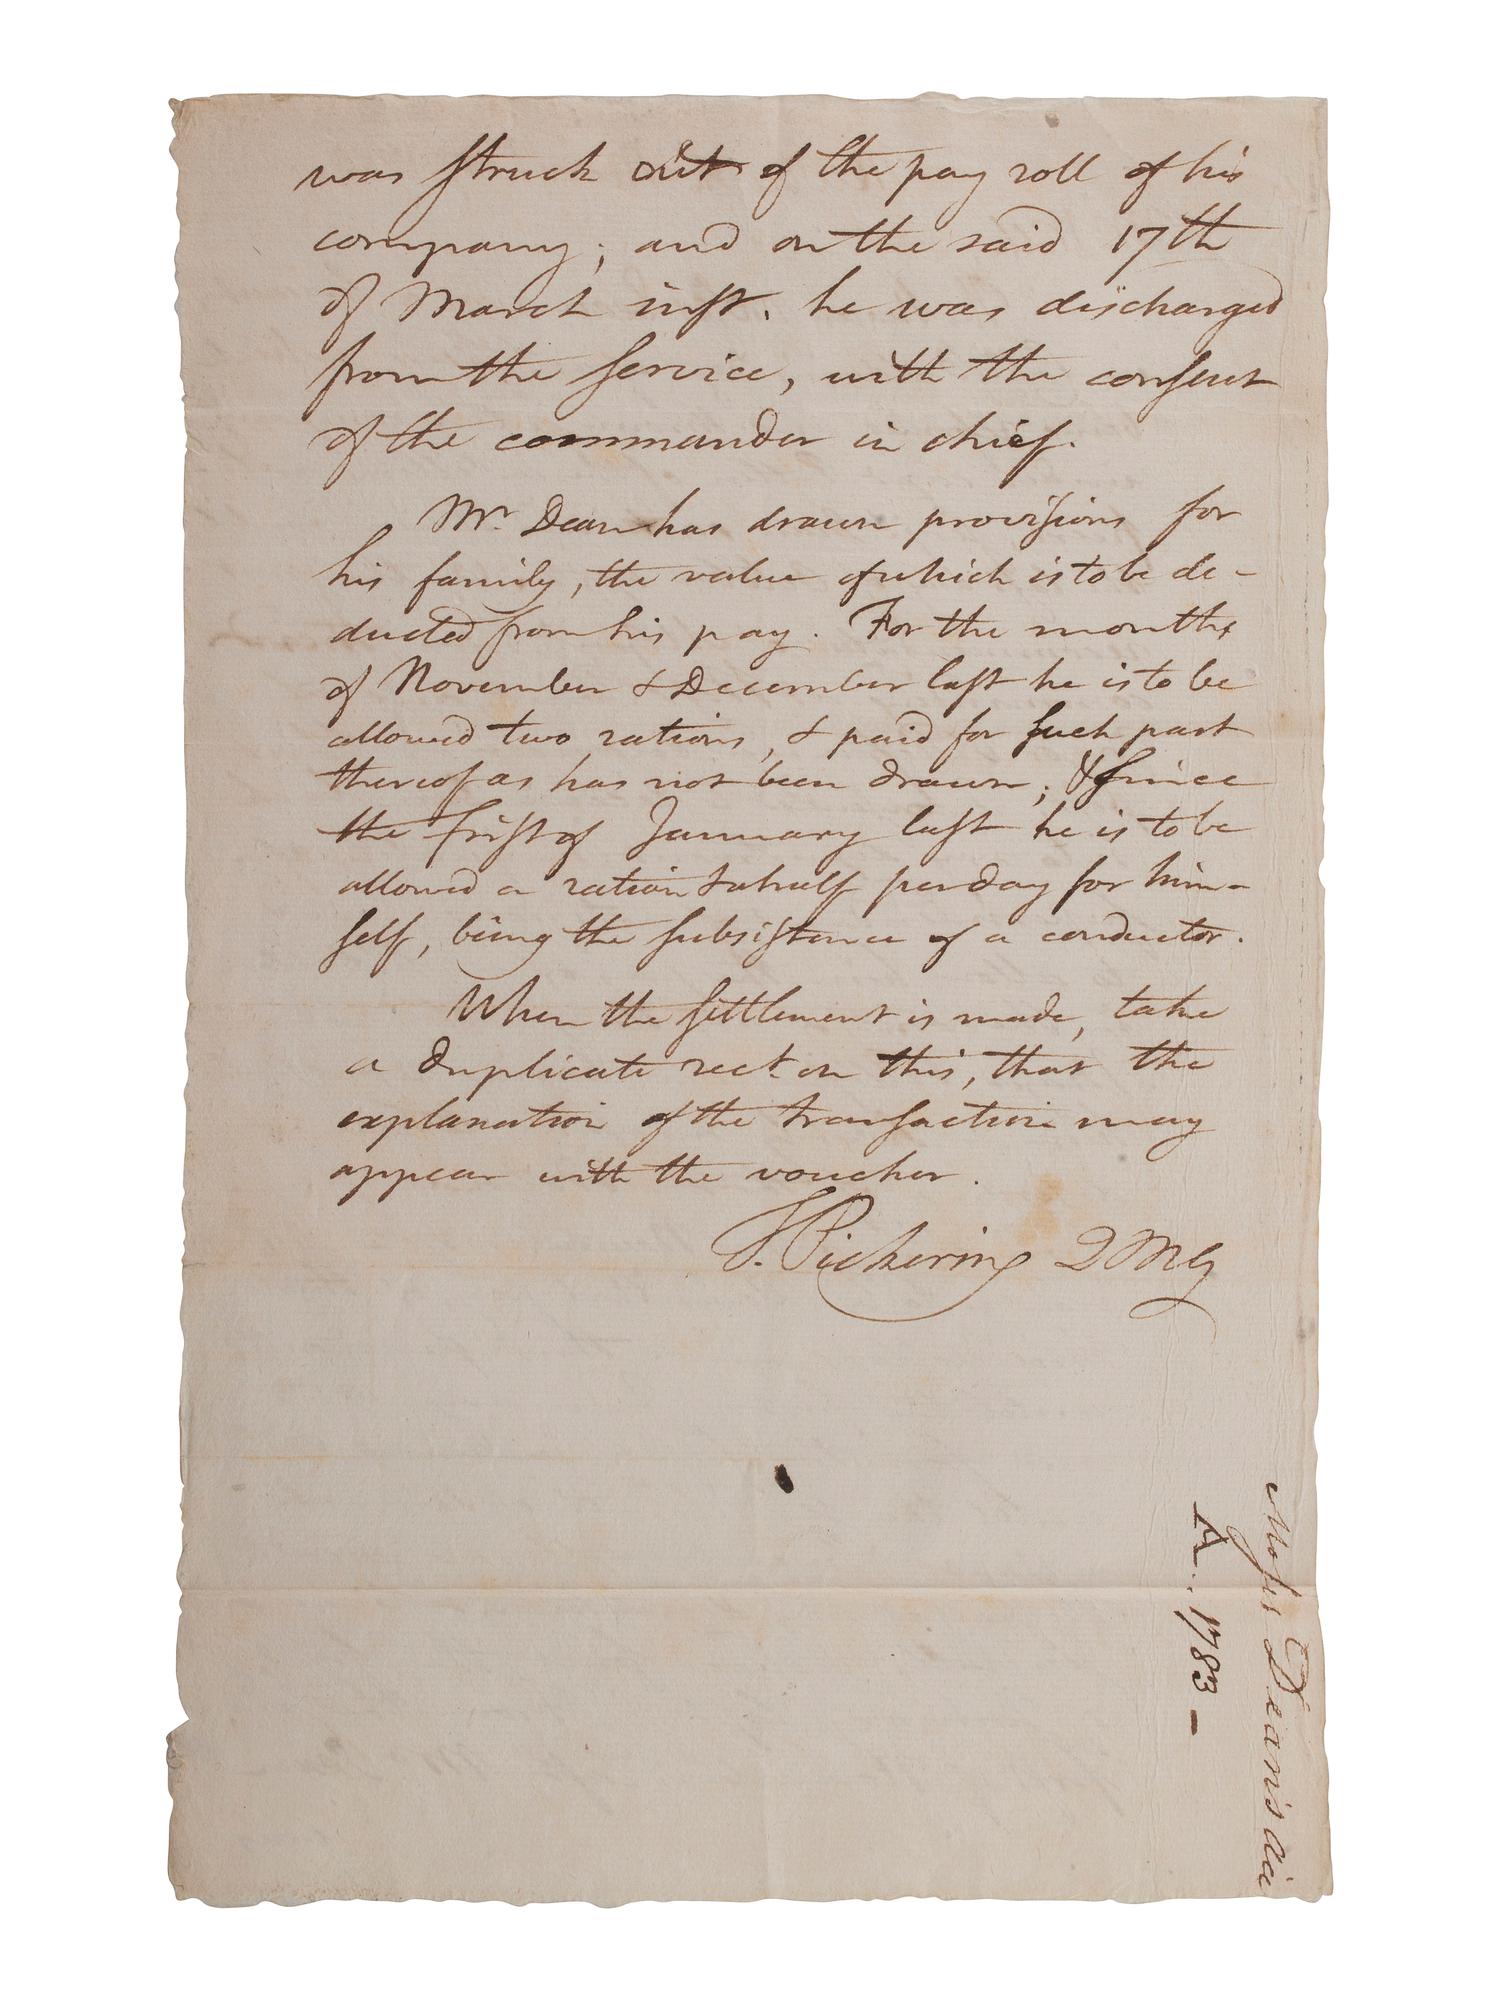 was struck out of the pay roll of his
company; and on the said 17th
of March inst. he was discharged
from the service, with the consent
of the commander in chief.
Mr. Dean has drawn provisions for
his family, the value of which is to be de-
ducted from his pay. For the months
of November & December last he is to be
allowed two rations, & paid for such part
thereof as has not been drawn; & since
the first of January last he is to be
allowed a ration & a half per day for him-
self, being the subsistence of a conductor.
When the settlement is made, take
a duplicate rect. on this, that the
explanation of the transaction may
appear with the voucher.
T. Pickering QMG
Moses Dean's Acc
A. 1783 -